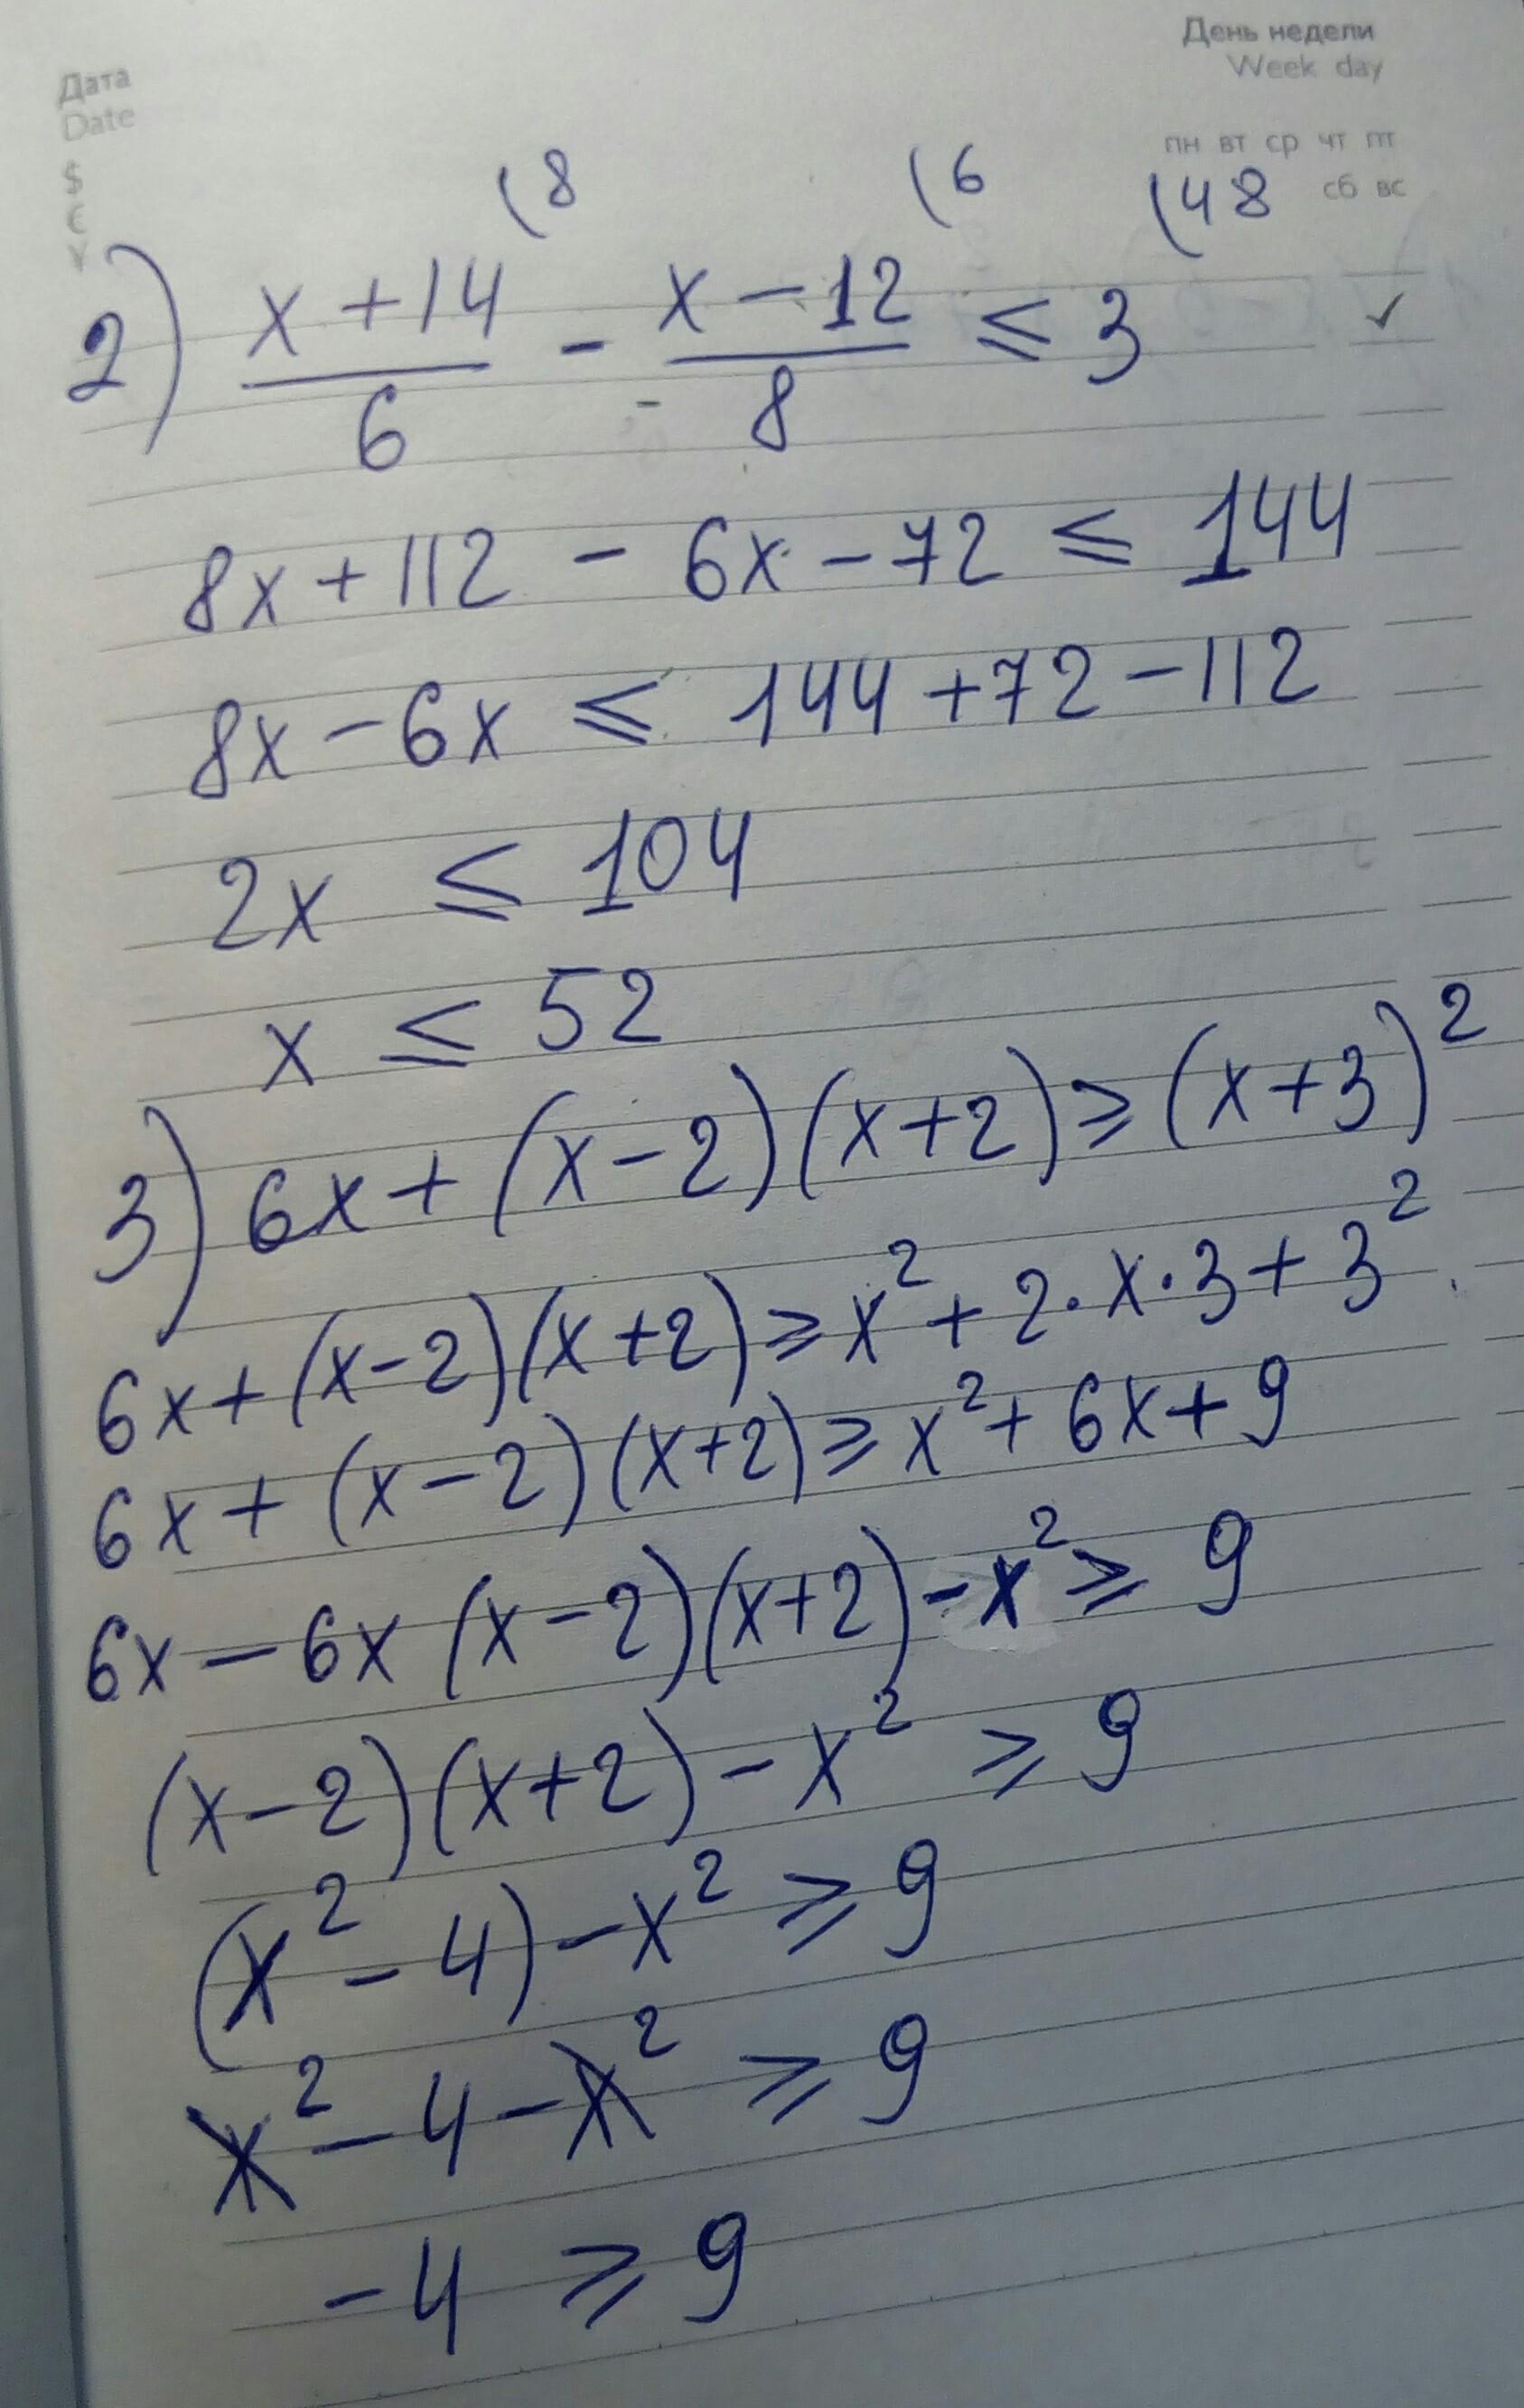 День недели
Week day
Дата
Date
$
€
¥
пн вт ср чт пт
сб вс
(8 (6 (48
2) x+14/6 - x-12/8 ≤ 3 ✓
8x+112 - 6x-72 ≤ 144
8x-6x ≤ 144+72-112
2x ≤ 104
x ≤ 52
3) 6x+(x-2)(x+2)≥(x+3)²
6x+(x-2)(x+2)≥x²+2·x·3+3²
6x+(x-2)(x+2)≥x²+6x+9
6x-6x(x-2)(x+2)-x²≥9
(x-2)(x+2)-x²≥9
(x²-4)-x²≥9
x²-4-x²≥9
-4≥9